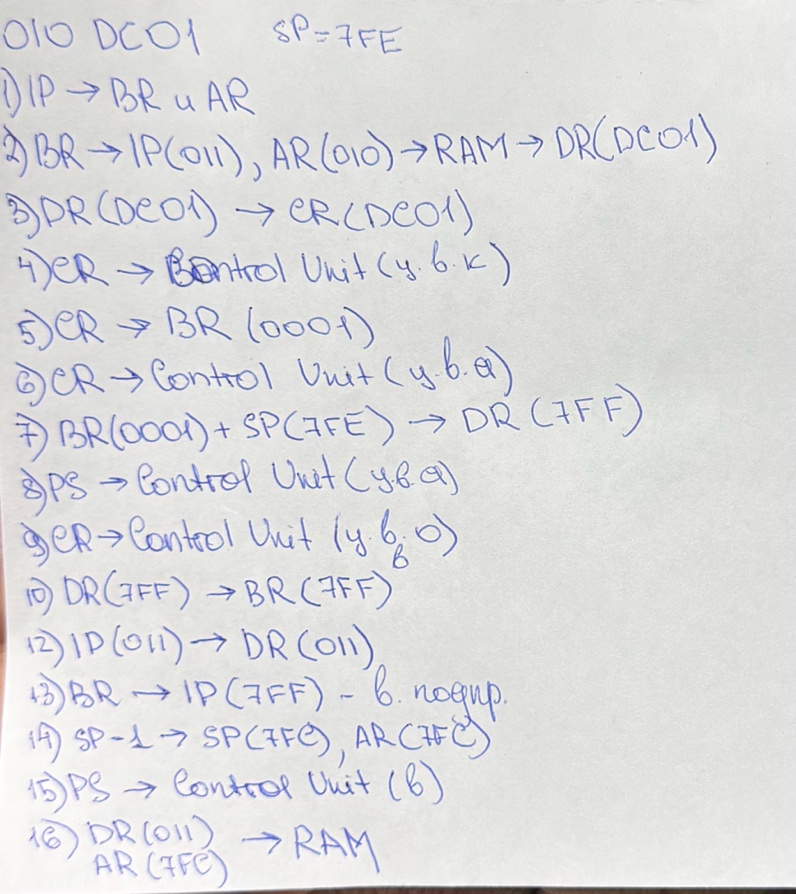 010 DC01 SP=7FE
1) IP → BR и AR
2) BR → IP(011), AR(010) → RAM → DR(DC01)
3) DR(DC01) → CR(DC01)
4) CR → Control Unit (у.в.к)
5) CR → BR (0001)
6) CR → Control Unit (у.в.а)
7) BR(0001) + SP(7FE) → DR(7FF)
8) PS → Control Unit (у.в.а)
9) CR → Control Unit (у.в.о)
в
10) DR(7FF) → BR(7FF)
12) IP(011) → DR(011)
13) BR → IP(7FF) - в. подпр.
14) SP-1 → SP(7FC), AR(7FC)
15) PS → Control Unit (в)
16) DR(011)
AR(7FC) → RAM